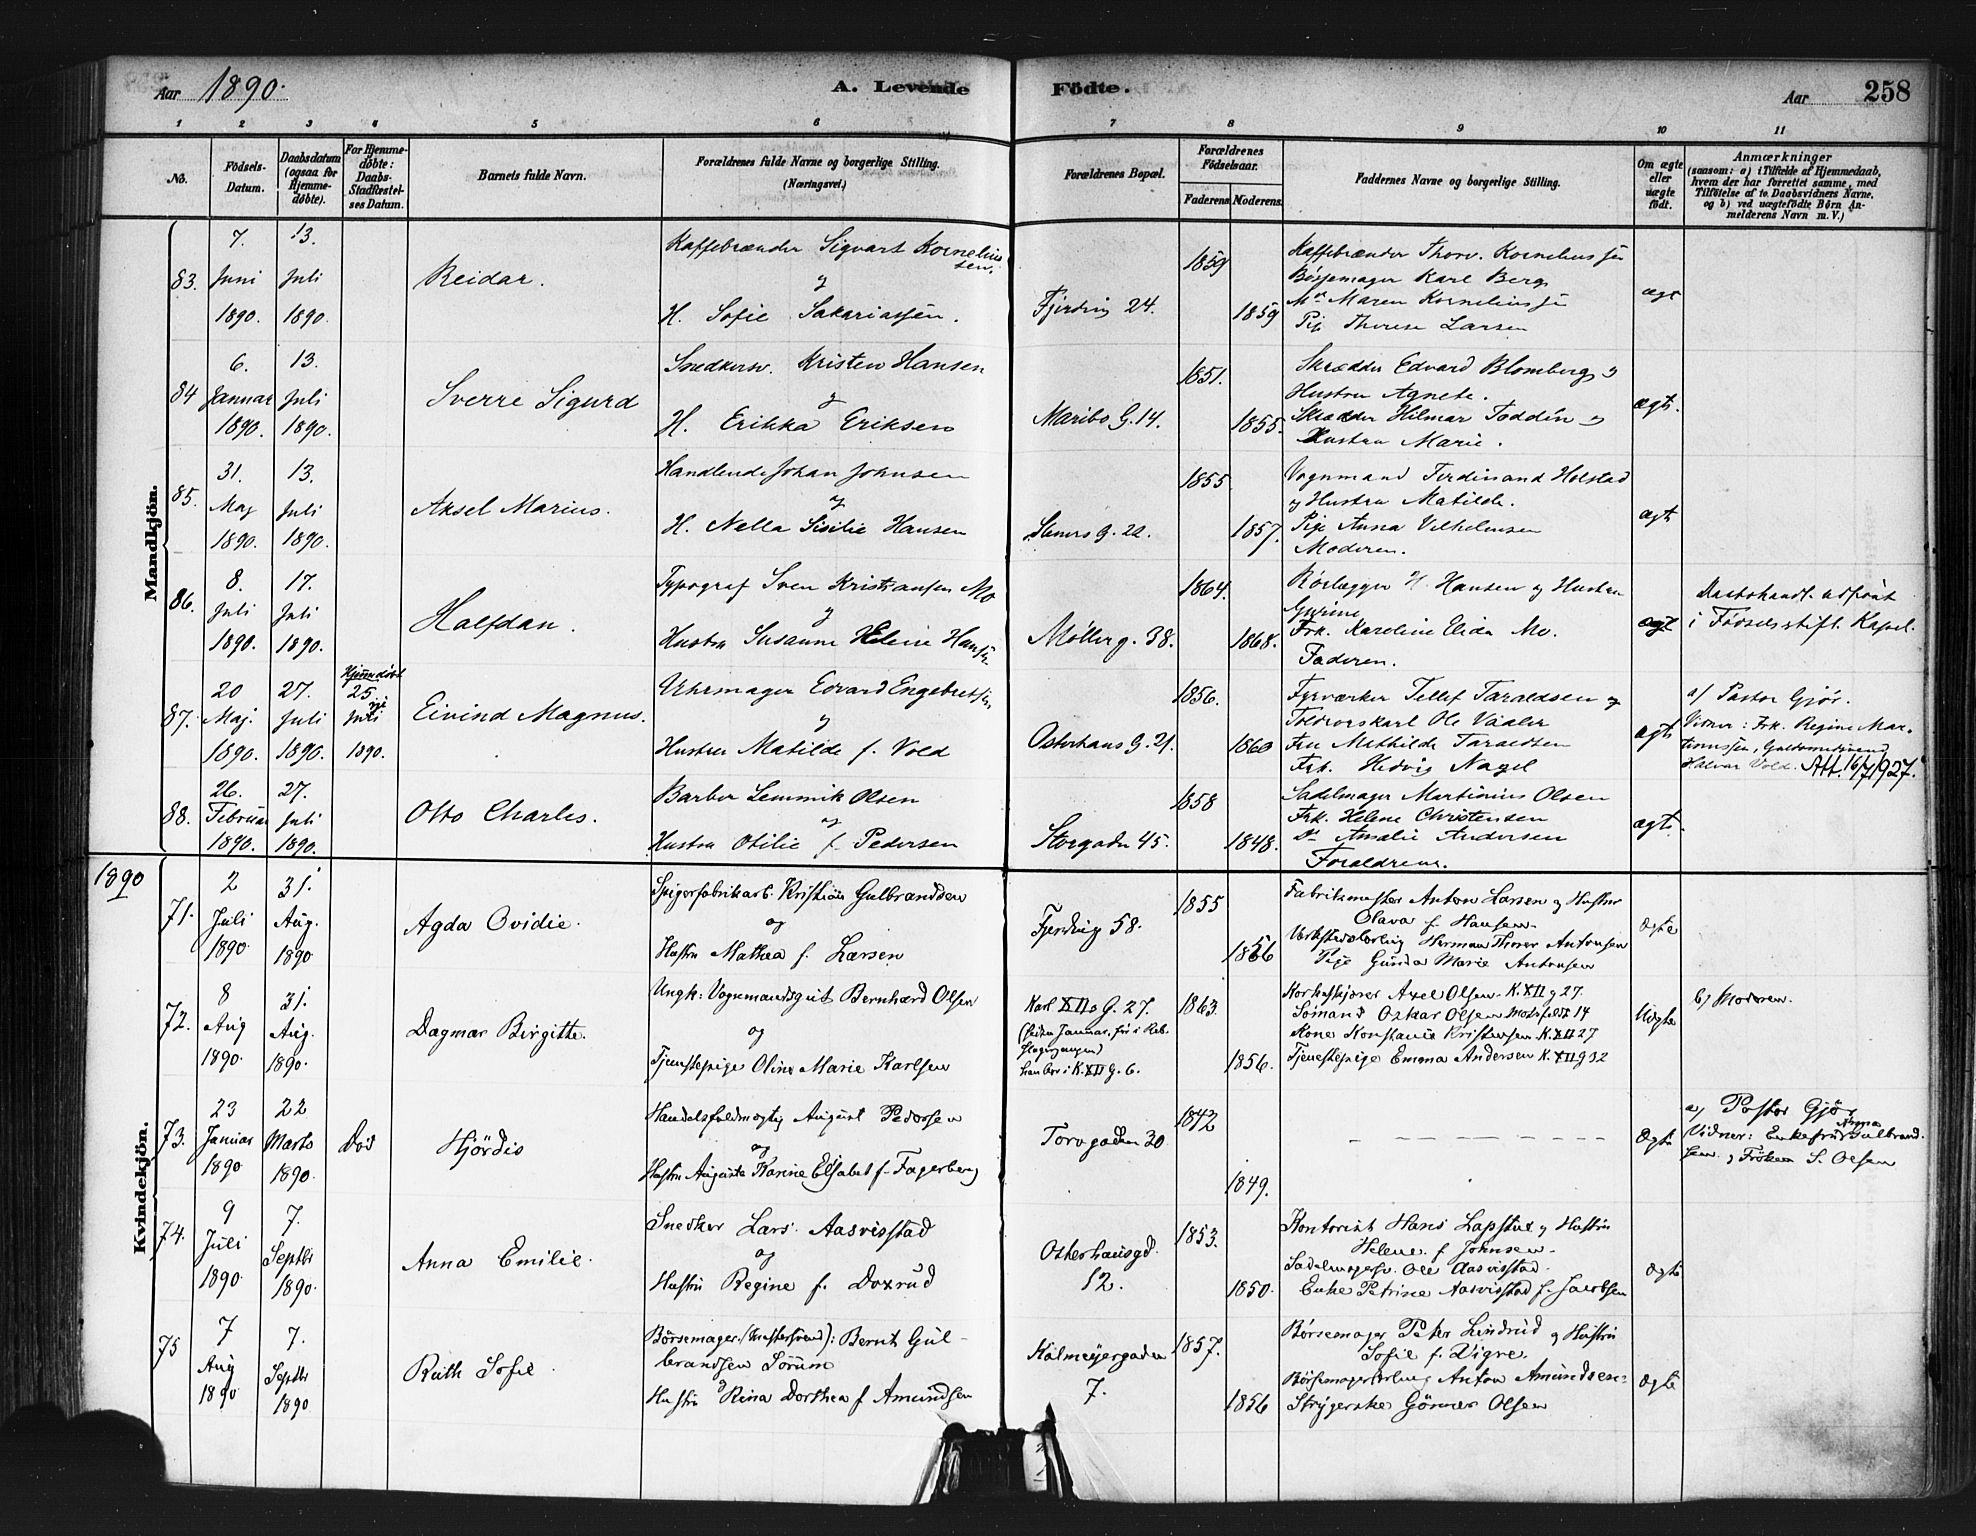 Aar 1890.
A. Levende Födte.
Aar 258
1 2 3 4 5 6 7 8 9 10 11
No.
Födsels-Datum.
Daabsdatum (ogsaa for Hjemme-døbte).
For Hjemme-døbte: Daabs-Stadfæstel-ses Datum.
Barnets fulde Navn.
Forældrenes fulde Navne og borgerlige Stilling. (Næringsvei.)
Forældrenes Bopæl.
Forældrenes Födselsaar.
Faderens Moderens.
Faddernes Navne og borgerlige Stilling.
Om ægte eller uægte födt.
Anmærkninger
(saasom: a) i Tilfælde af Hjemmedaab, hvem der har forrettet samme, med Tilföielse af to Daabsvidners Navne, og b) ved uægtefödte Börn An-melderens Navn m. V.)
Mandkjön.
83. 7. Juni 1890. 13. Juli 1890.
Reidar.
Kaffebrænder Sigvart Kornelius
sen.
H. Sofie Sakariassen.
Fjerding 24.
1859 1859
Kaffebrænder Thorv. Korneliussen
Børsemager Karl Berg
Maren Korneliussen
Pige Therese Larsen
ægt
84 6. Januar 1890. 13. Juli 1890.
Sverre Sigurd
Snedkersv. Kristen Hansen
og
H. Erikka Eriksen
Maribo G. 14.
1851. 1855.
Skrædder Edvard Blomberg og
Hustru Agnete.
Skrædder Hilmar Toddén og
Hustru Marie.
ægte.
85. 31. Maj 1890. 13. Juli 1890.
Aksel Marius.
Handlende Johan Johnsen
og
H. Nella Sisilie Hansen
G. 22.
1855 1857.
Vognmand Ferdinand Holstad
og Hustru Matilde.
Pige Anna Vilhelmsen
Moderen.
ægte
86. 8. Juli 1890. 17. Juli 1890.
Halfdan.
Typograf Sven Kristiansen Mo
og
Hustru Susanne Helene Hansen
Møllerg. 38.
1864. 1868.
Rørlægger H. Hansen og Hustru
Gurine
Frk. Karoline Elida Mo.
Faderen.
ægt
Daabshandl. udført
i Fødselsstift. Kapel.
87. 20 Maj. 1890. 27. Juli 1890. Hjemmedøbt 25 Juli 1890.
Eivind Magnus.
Uhrmager Edvard Engebretsen,
og
Hustru Matilde f. Vold
Osterhaus G. 21.
1856. 1860
Fyrværker Tellef Taraldsen og
Toldvorskarl Ole Vaaler
Fru Mathilde Taraldsen
Frk. Hedvig Nagel
ægte
a) Pastor Gjør.
Vidner: Frk. Regine Mar-
tinussen, Guldsmedsvend
Halvar Vold. Att. 16/7 1927.
88. 26. Februar 1890. 27. Juli 1890.
Otto Charles.
Barber Lemmik Olsen
og
Hustru Otilie f. Pedersen
Storgaden 45.
1858 1848.
Sadelmager Martinius Olsen
Frk. Helene Christensen
Do Amalie Andersen
Forældrene.
ægte.
1890
Kvindekjön.
71. 2 Juli 1890 31. Aug. 1890
Agda Ovidie.
Spigerfabrikarb. Kristian Gulbrandsen
og
Hustru Mathea f. Larsen
Fjerding 58.
1855 1856
Fabrikmester Anton Larsen og Hustru
Olava f. Hansen.
Værkstedslærling Herman Thorer Antonsen
Pige Gunda Marie Antonsen
ægte
72. 8 Aug 1890 31. Aug. 1890.
Dagmar Birgitte.
Ungk: Vognmandsgut Bernhard Olsen
og
Tjenestepige Oline Marie Karlsen
Karl XIIs G. 27.
(siden Januar, før i Reb-
slagergangen)
han bor i K. XII G. 6.
1863. 1856.
Korkskjærer Axel Olsen K. XII g 27.
Sømand Oskar Olsen Motzfeldt 14
Kone Konstance Kristensen K. XII 27
Tjenestepige Emma Andersen K. XII g 32
Uægte
b) Moderen.
73. 23 Januar 1890 22 Marts 1890. Död
Hjördis
Handelsfuldmægtig August Pedersen
og
Hustru Augusta Karine Elisabet f. Fagerberg
Torvgaden 20
1842 1849.
Ægte
a) Pastor Gjør
Vidner: Enkefru Anna Gulbrand-
sen og Frøken S. Olsen
74. 9 Juli 1890 7. Septbr 1890.
Anna Emilie.
Snedker Lars Aasvisstad
og
Hustru Regine f. Doxrud
Osterhausgd.
12.
1853. 1850.
Kontorist Hans Lapstue og Hustru
Helene f. Johnsen.
Sadelmagersv. Ole Aasvisstad.
Enke Petrine Aasvisstad f. Jacobsen
ægte
75 7 Aug 1890 7. Septbr 1890
Ruth Sofie.
Børsemager (Mestersvend): Bernt Gul-
brandsen Sörum
og
Hustru Rina Dorthea f. Amundsen
Kalmeyergaden
7.
1857. 1856
Børsemager Peter Lindrud og Hustru
Sofie f. Vigre.
Børsemagerlærling Anton Amundsen
Strygerske Gönner Olsen
Ægte